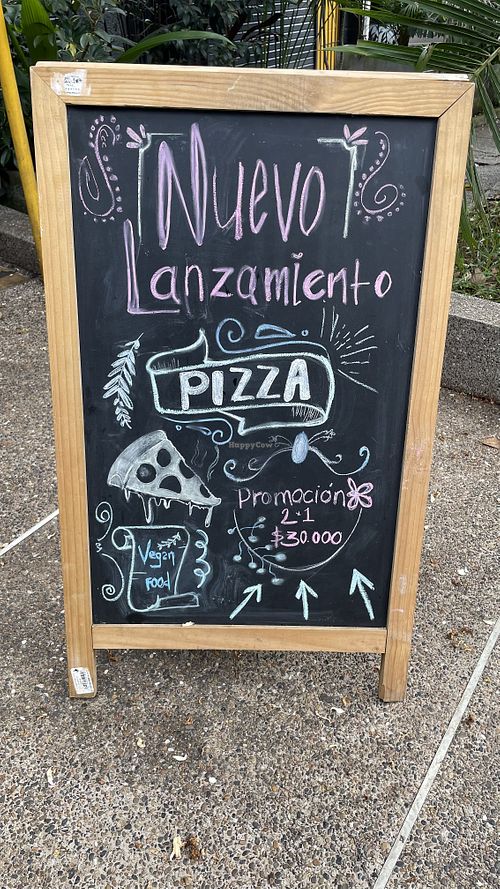 Nuevo
Lanzamiento
PIZZA
HappyCow
Promoción
2x1
$30.000
Vegan
FOOD